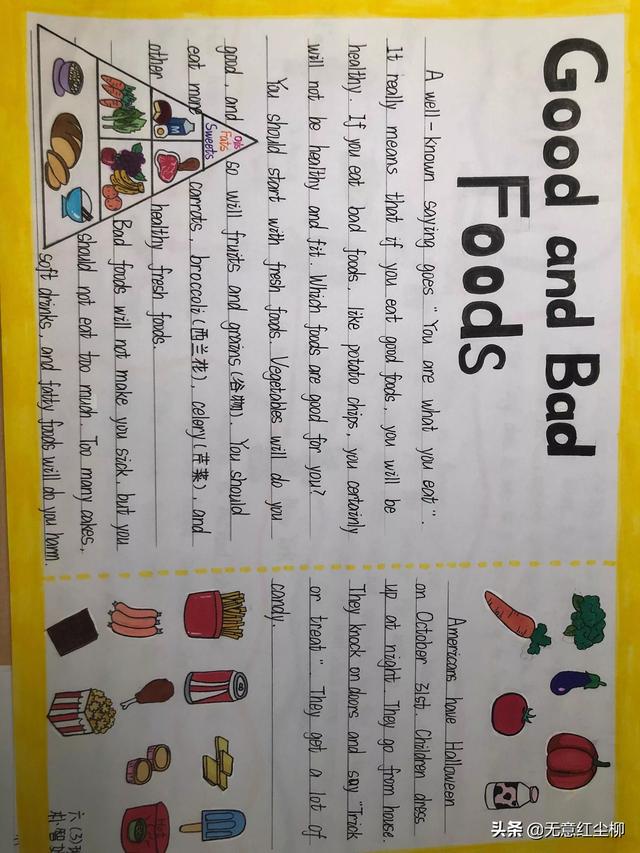 Good and Bad
Foods
A well-known saying goes "You are what you eat".
It really means that if you eat good foods, you will be
healthy. If you eat bad foods, like potato chips, you certainly
will not be healthy and fit. Which foods are good for you?
You should start with fresh foods. Vegetables will do you
good, and so will fruits and grains (谷物). You should
eat more carrots, broccoli (西兰花), celery (芹菜), and
other healthy fresh foods.
Bad foods will not make you sick, but you
should not eat too much. Too many cakes,
soft drinks, and fatty foods will do you harm.
Oils
Fats
Sweets
M
Americans have Halloween
on October 31st. Children dress
up at night. They go from house.
They knock on doors and say "Trick
or treat". They get a lot of
candy.
六(3)
头条 @无意红尘柳